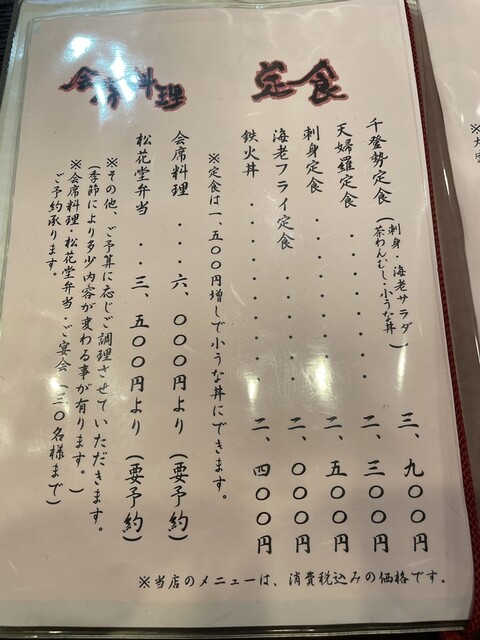 定食
千登勢定食（刺身・海老サラダ
茶わんむし・小うな丼）三、九〇〇円
天婦羅定食・・・・・・・二、三〇〇円
刺身定食・・・・・・・・二、五〇〇円
海老フライ定食・・・・・二、〇〇〇円
鉄火丼・・・・・・・・・二、四〇〇円
※定食は一、五〇〇円増しで小うな丼にできます。
会席料理
会席料理・・・六、〇〇〇円より（要予約）
松花堂弁当・・三、五〇〇円より（要予約）
※その他、ご予算に応じご調理させていただきます。
（季節により多少内容が変わる事が有ります。）
※会席料理・松花堂弁当・ご宴会（三〇名様まで）
ご予約承ります。
※当店のメニューは、消費税込みの価格です。